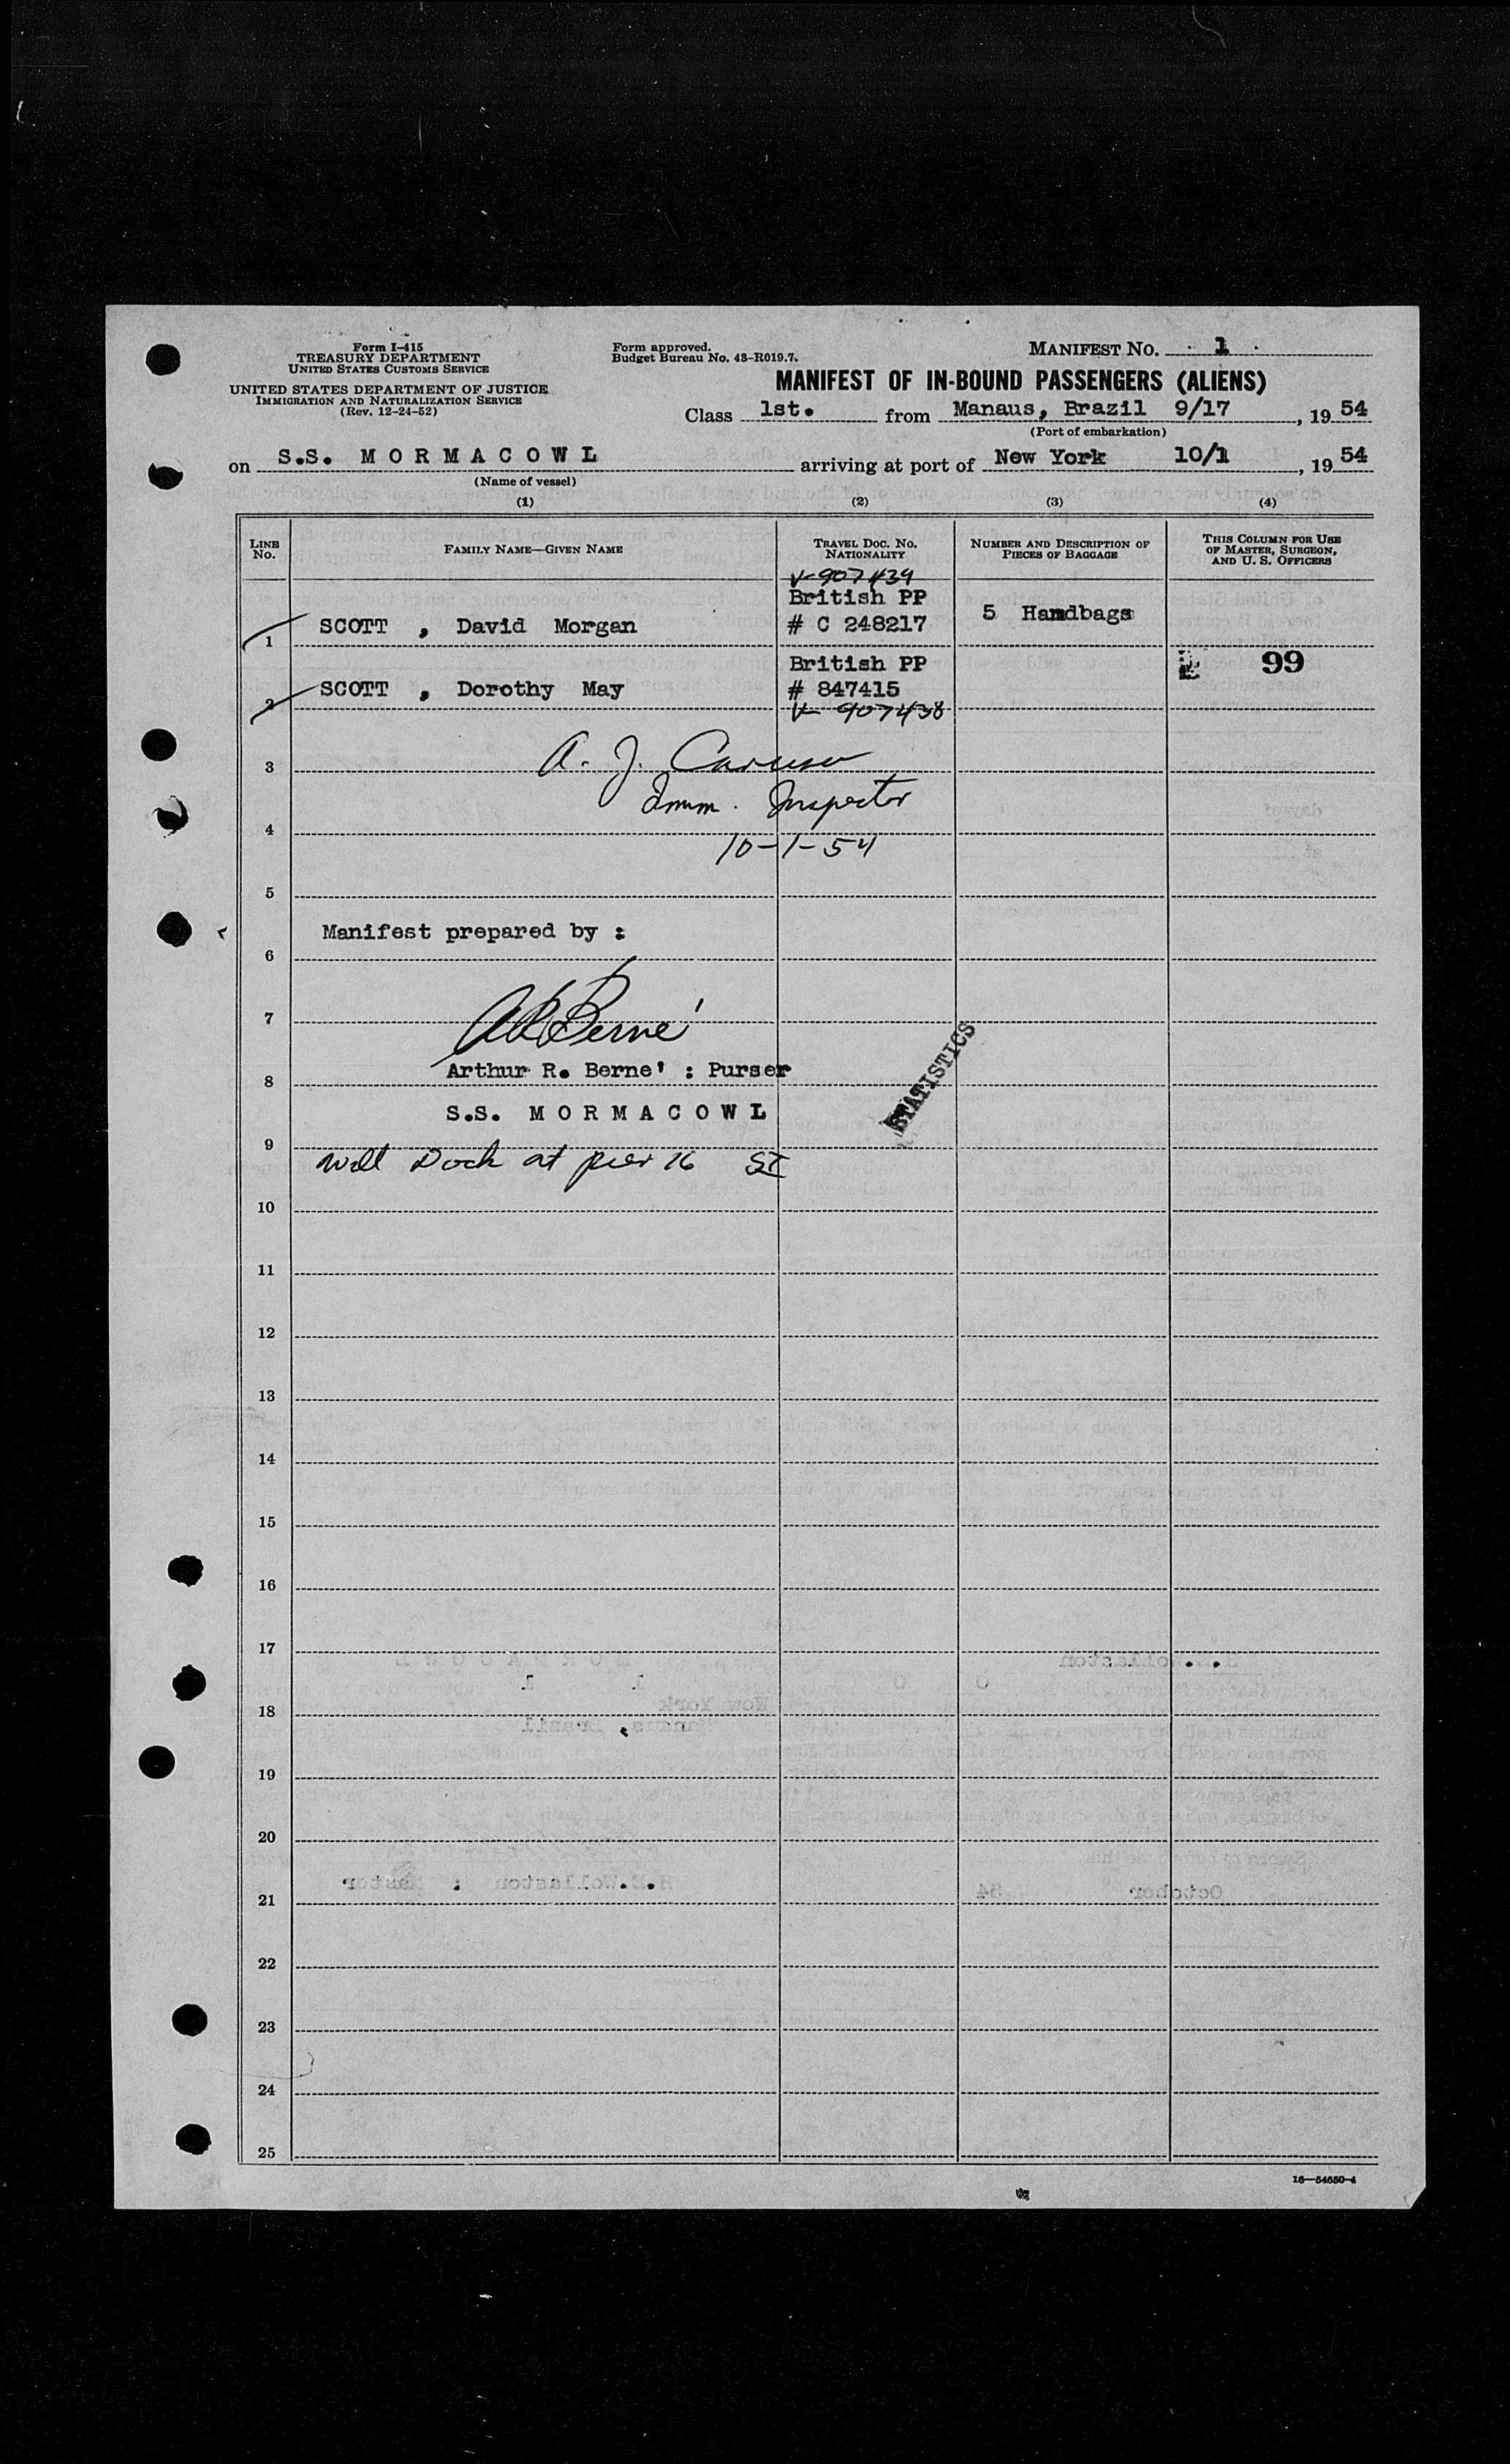 Form I-415
TREASURY DEPARTMENT
UNITED STATES CUSTOMS SERVICE
UNITED STATES DEPARTMENT OF JUSTICE
IMMIGRATION AND NATURALIZATION SERVICE
(Rev. 12-24-52)
Form approved.
Budget Bureau No. 43-R019.7.
MANIFEST NO. 1
MANIFEST OF IN-BOUND PASSENGERS (ALIENS)
Class 1st. from Manaus, Brazil 9/17, 1954
(Port of embarkation)
on S.S. MORMACOWL arriving at port of New York 10/1, 1954
(Name of vessel)
(1) (2) (3) (4)
LINE NO.
FAMILY NAME—GIVEN NAME
TRAVEL DOC. NO.
NATIONALITY
NUMBER AND DESCRIPTION OF
PIECES OF BAGGAGE
THIS COLUMN FOR USE
OF MASTER, SURGEON,
AND U. S. OFFICERS
V-907439
British PP
1 SCOTT , David Morgan # C 248217 5 Handbags
British PP 99
2 SCOTT , Dorothy May # 847415
V-907438
3 A. J. Caruso
Imm. Inspector
4
10-1-54
5
Manifest prepared by :
6
7 AR Berne'
Arthur R. Berne' : Purser
8
STATISTICS
S.S. MORMACOWL
9
Will Dock at pier 16 SI
10
11
12
13
14
15
16
17
18
19
20
21
22
23
24
25
16—54650-4